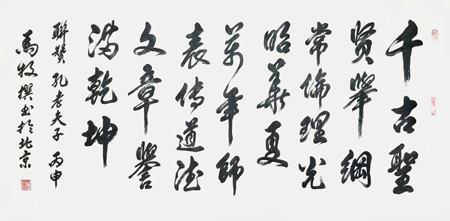 千古聖
贤舉綱
常倫理光
昭華夏
萬年師
表传道德
文章譽
满乾坤
聯贊孔老夫子 丙申
馬牧撰书於北京